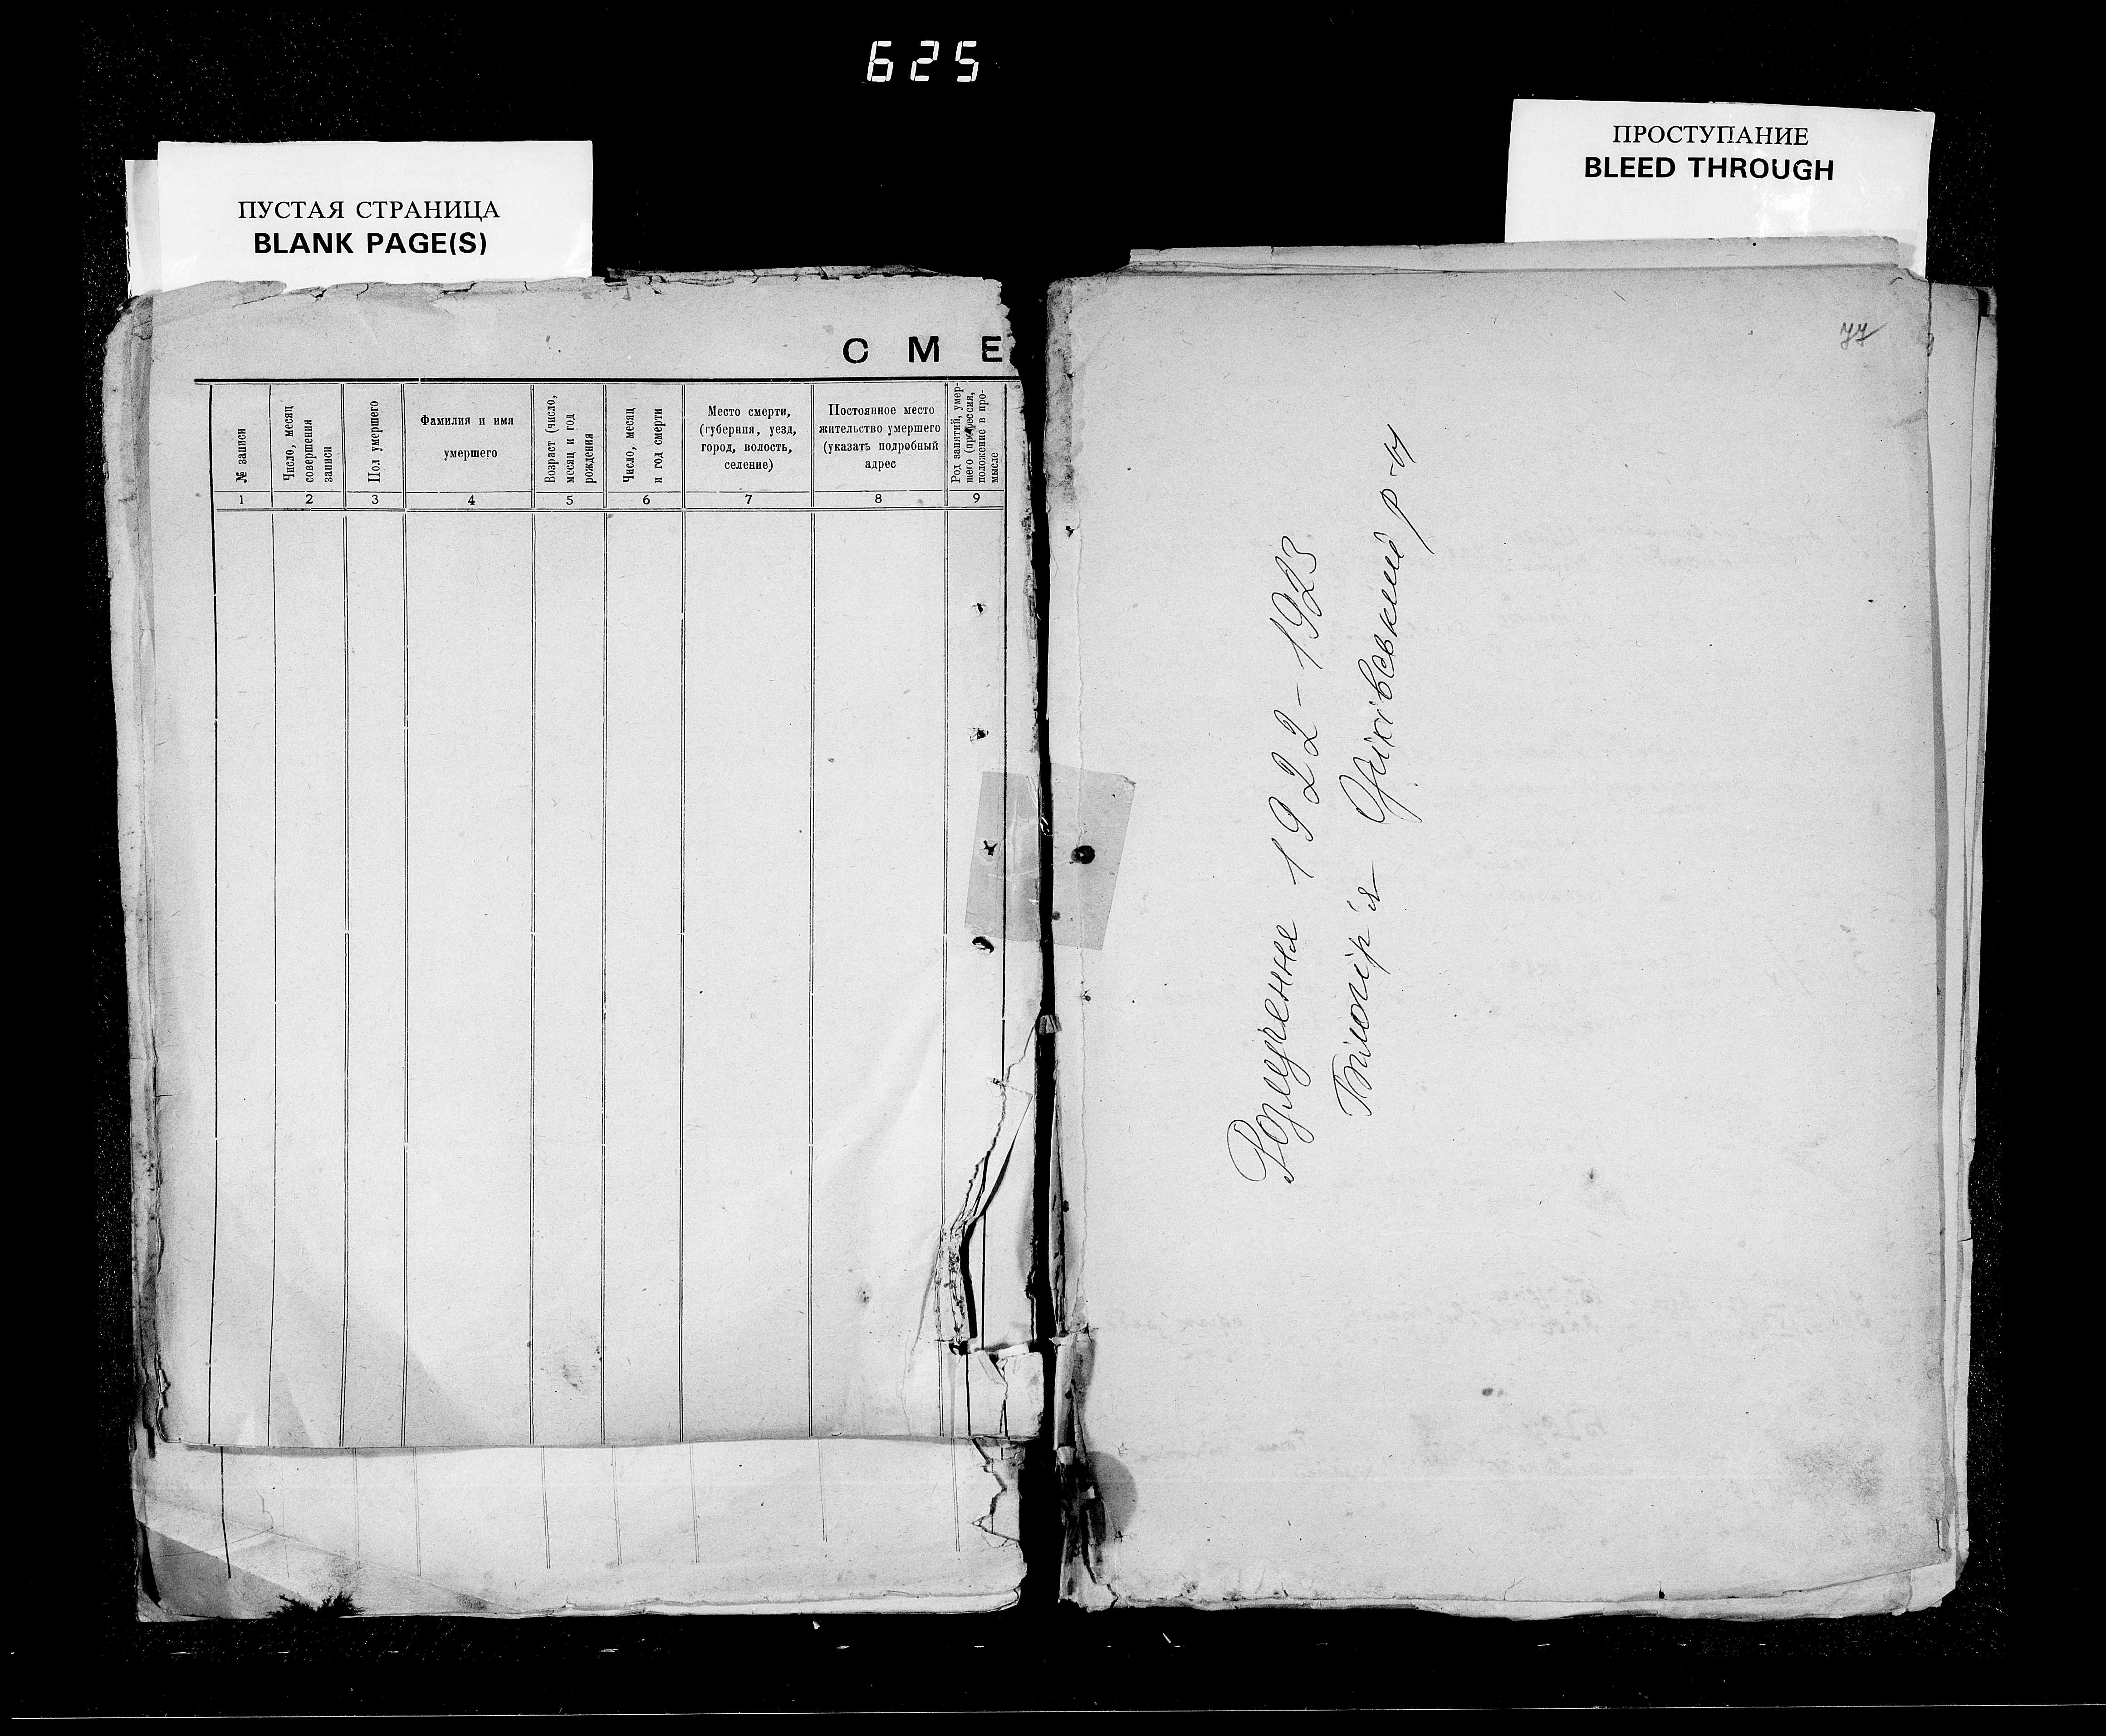 625
ПУСТАЯ СТРАНИЦА
BLANK PAGE(S)
ПРОСТУПАНИЕ
BLEED THROUGH
СМЕ
№ записи
Число, месяц
совершения
записи
Пол умершего
Фамилия и имя
умершего
Возраст (число,
месяц и год
рождения
Число, месяц
и год смерти
Место смерти,
(губерния, уезд,
город, волость,
селение)
Постоянное место
жительство умершего
(указать подробный
адрес
Род занятий, умер-
шего (профессия,
положение в про-
мысле
1 2 3 4 5 6 7 8 9
77
Рождення 1922-1923
Білогір'я Оріхівський р-н